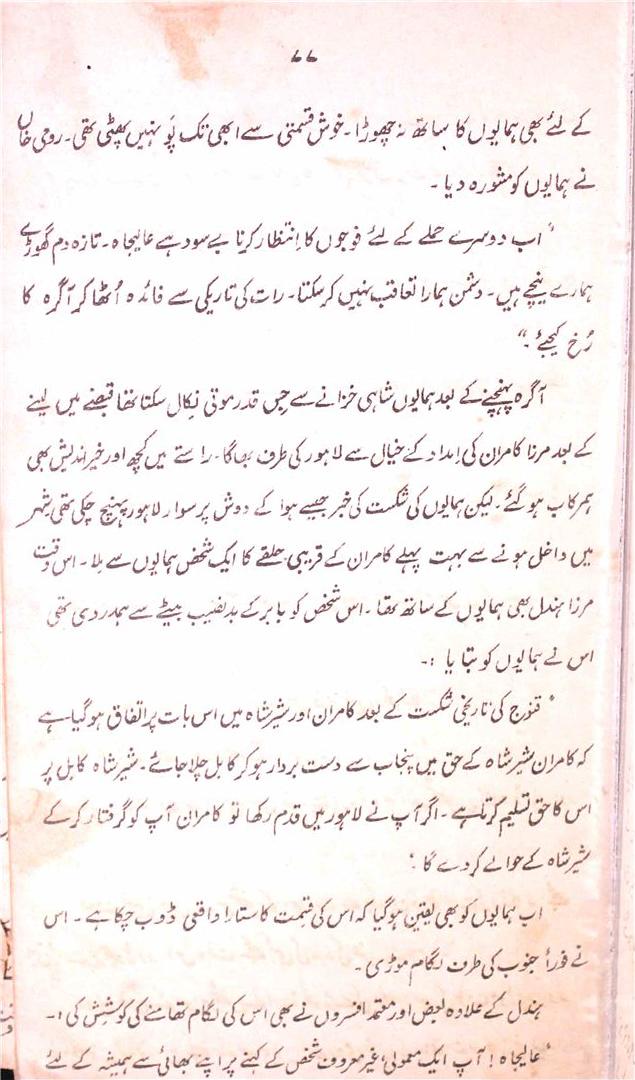 ۷۷
کے لئے بھی ہمایوں کا ساتھ نہ چھوڑا۔ خوش قسمتی سے ابھی تک پَو نہیں پھٹی تھی۔ رومی خاں
نے ہمایوں کو مشورہ دیا۔
"اب دوسرے حملے کے لئے فوجوں کا اِنتظار کرنا بے سود ہے عالیجاہ۔ تازہ دم گھوڑے
ہمارے نیچے ہیں۔ دشمن ہمارا تعاقب نہیں کر سکتا۔ رات کی تاریکی سے فائدہ اُٹھا کر آگرہ کا
رُخ کیجئے۔"
آگرہ پہنچنے کے بعد ہمایوں شاہی خزانے سے جس قدر موتی نِکال سکتا تھا قبضے میں لینے
کے بعد مرزا کامران کی اِمداد کے خیال سے لاہور کی طرف بھاگا۔ راستے میں کچھ اور خیر اندیش بھی
ہمرکاب ہو گئے۔ لیکن ہمایوں کی شکست کی خبر جیسے ہوا کے دوش پر سوار لاہور پہنچ چکی تھی، شہر
میں داخل ہونے سے بہت پہلے کامران کے قریبی حلقے کا ایک شخص ہمایوں سے مِلا۔ اس وقت
مرزا ہندل بھی ہمایوں کے ساتھ تھا۔ اس شخص کو بابر کے بدنصیب بیٹے سے ہمدردی تھی
اس نے ہمایوں کو بتایا :۔
"قنوج کی تاریخی شکست کے بعد کامران اور شیر شاہ میں اس بات پر اتفاق ہو گیا ہے
کہ کامران شیر شاہ کے حق میں پنجاب سے دست بردار ہو کر کابل چلا جائے۔ شیر شاہ کابل پر
اس کا حق تسلیم کرتا ہے۔ اگر آپ نے لاہور میں قدم رکھا تو کامران آپ کو گرفتار کر کے
شیر شاہ کے حوالے کر دے گا۔"
اب ہمایوں کو بھی یقین ہو گیا کہ اس کی قِسمت کا ستارا واقعی ڈوب چکا ہے۔ اس
نے فوراً جنوب کی طرف لگام موڑی۔
ہندل کے علاوہ بعض اور معتمد افسروں نے بھی اس کی لگام تھامنے کی کوشِش کی :۔
"عالیجاہ! آپ ایک معمولی، غیر معروف شخص کے کہنے پر اپنے بھائی سے ہمیشہ کے لئے